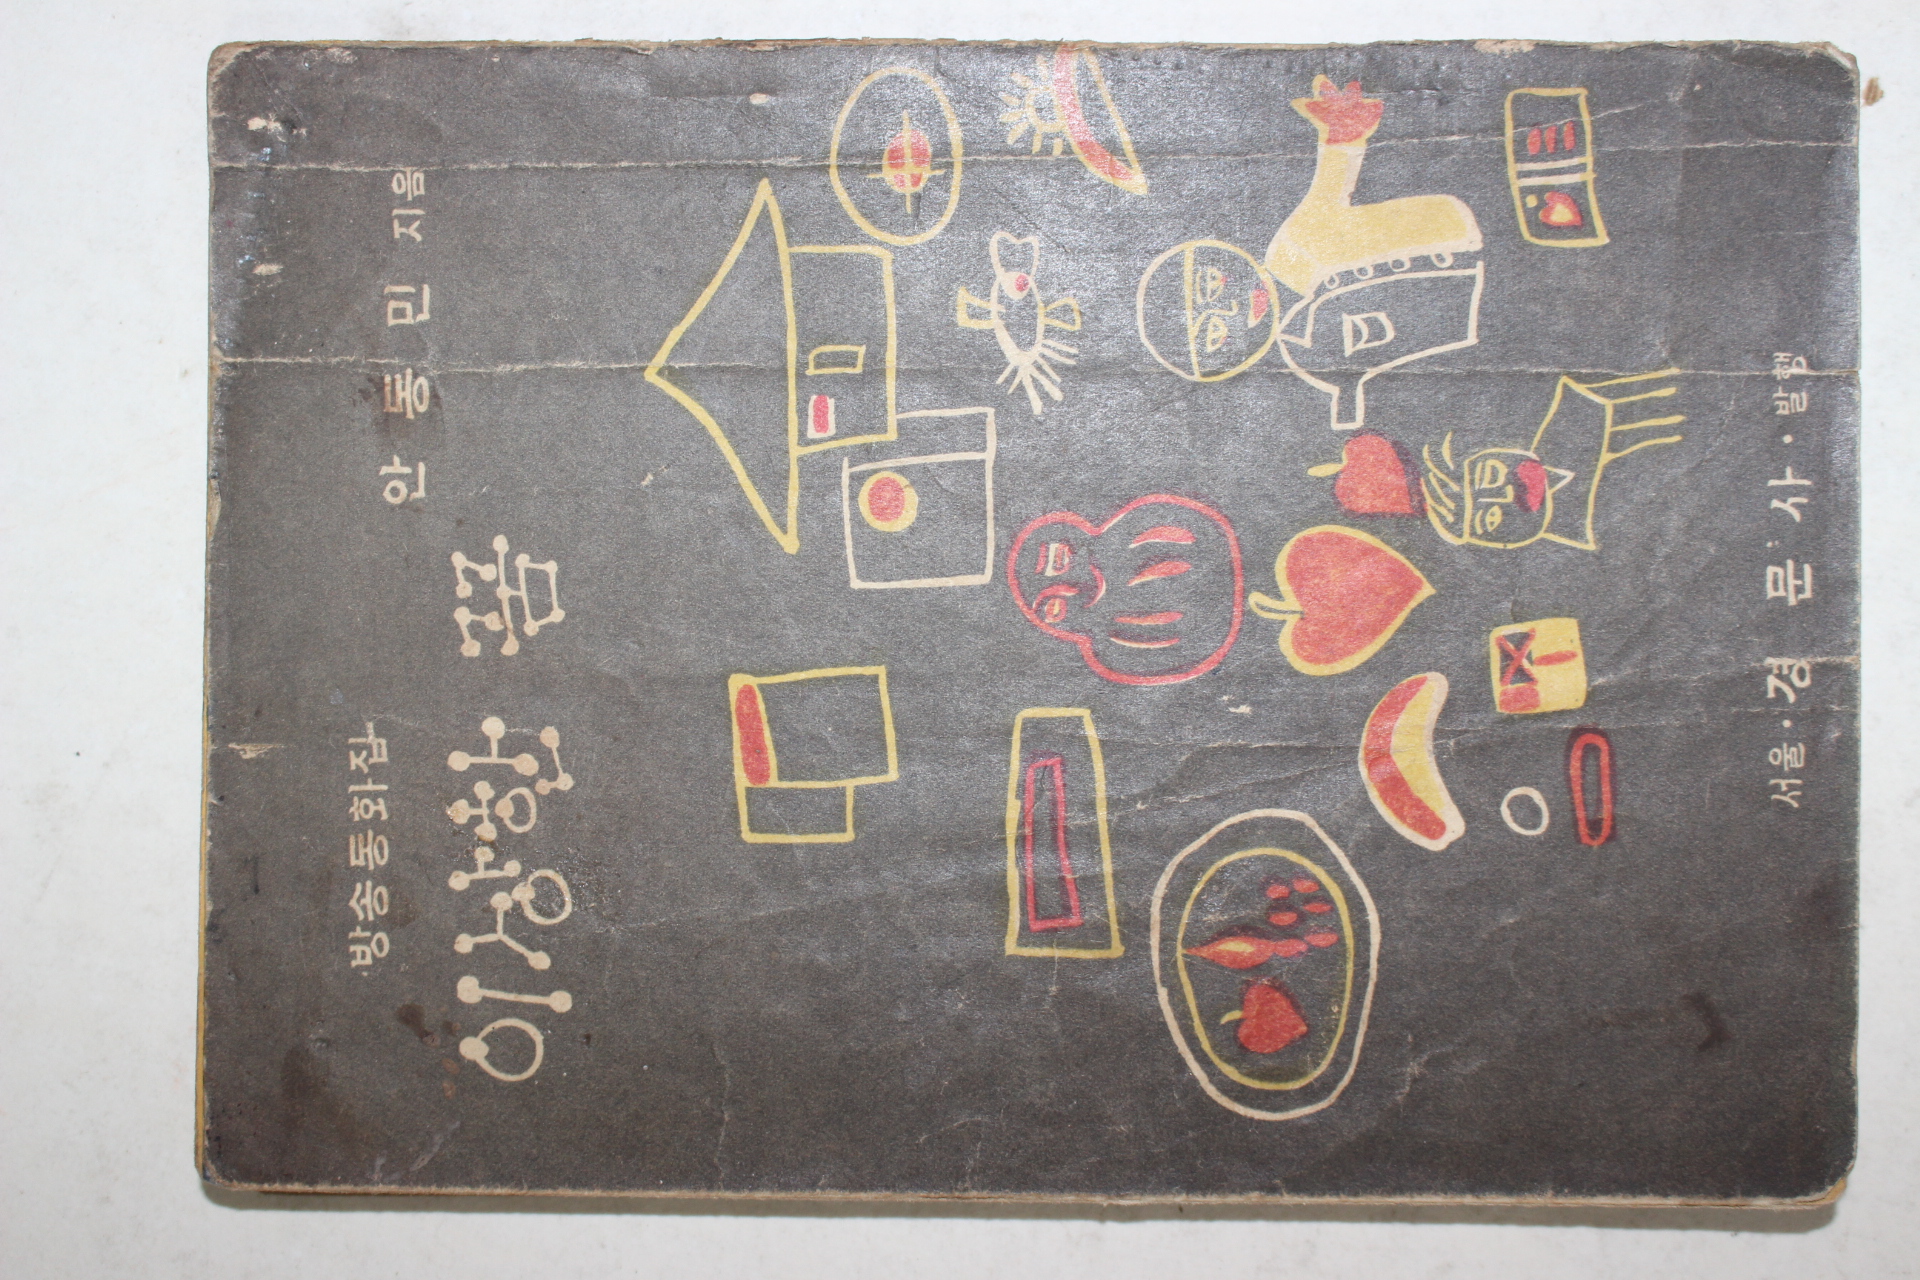 방송동화집
이상한 꿈
안동민 지음
서울·경문사·발행